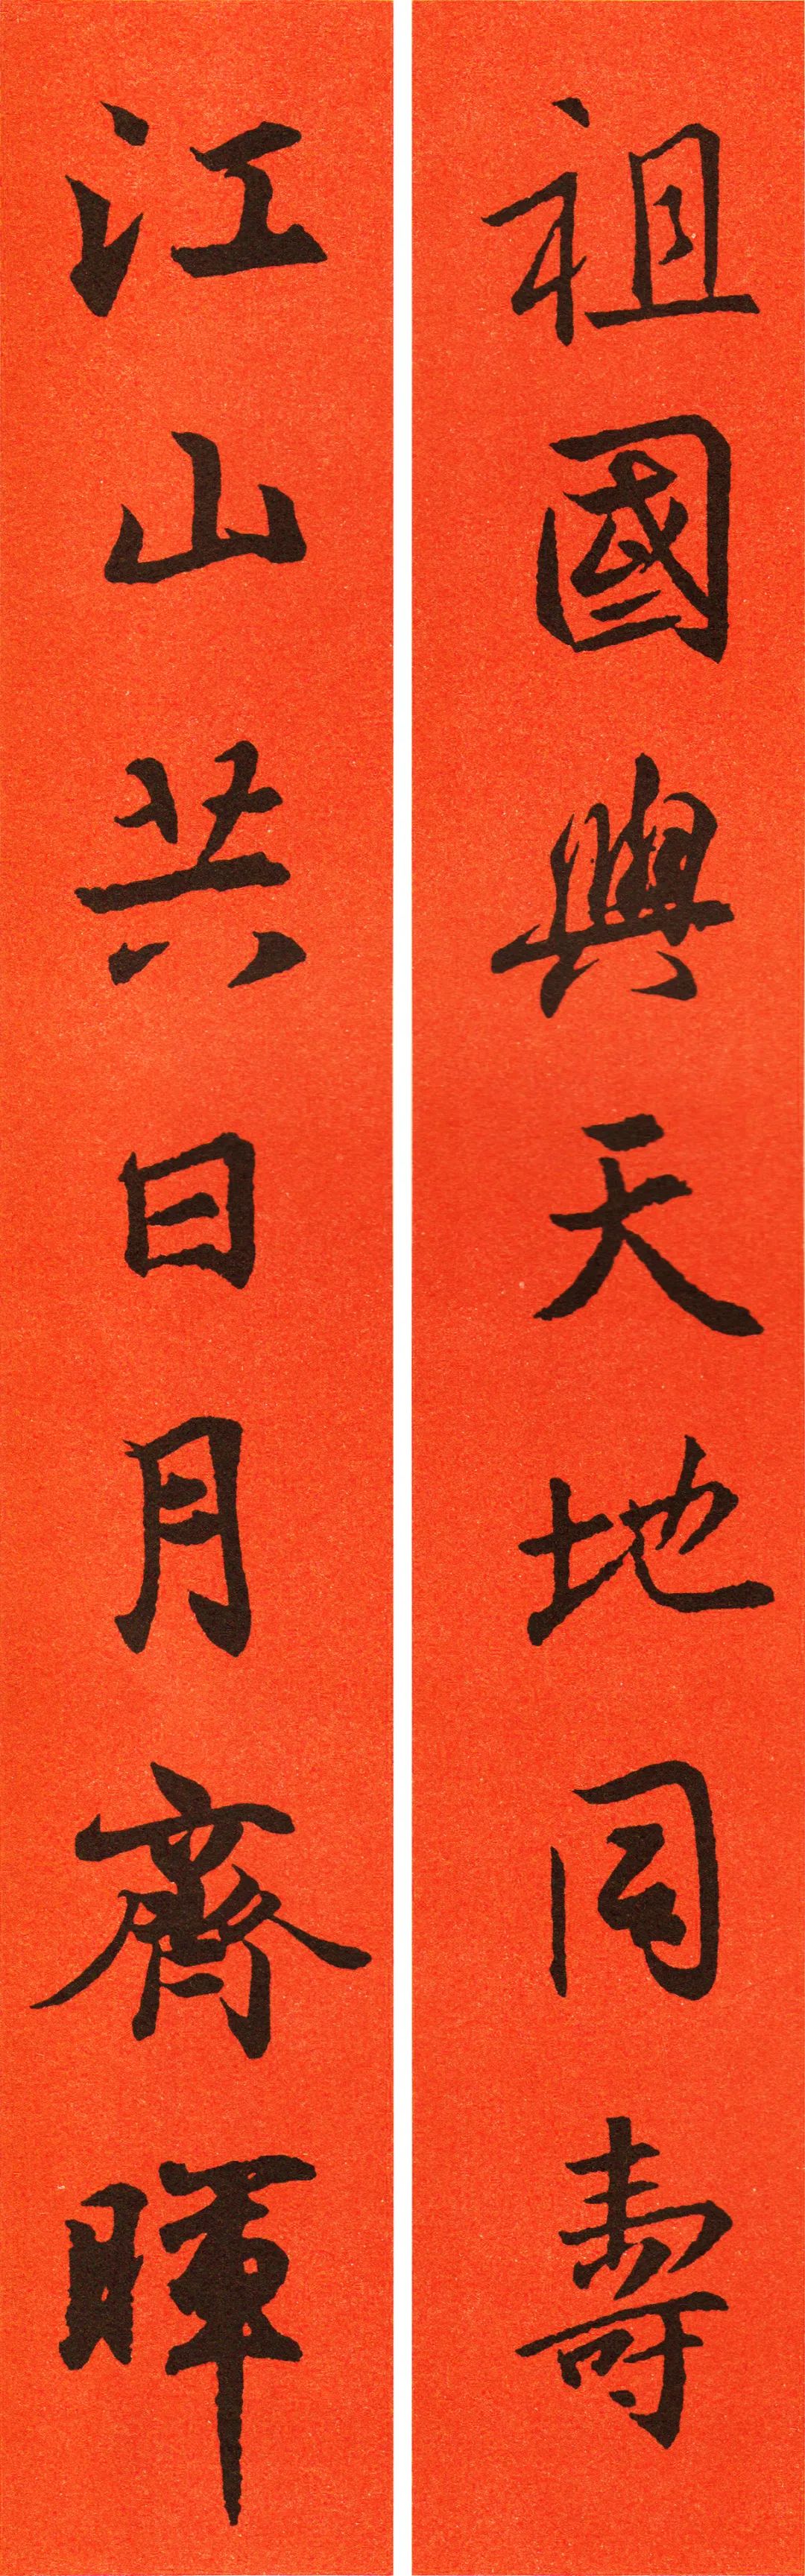 祖國與天地同壽
江山共日月齊暉